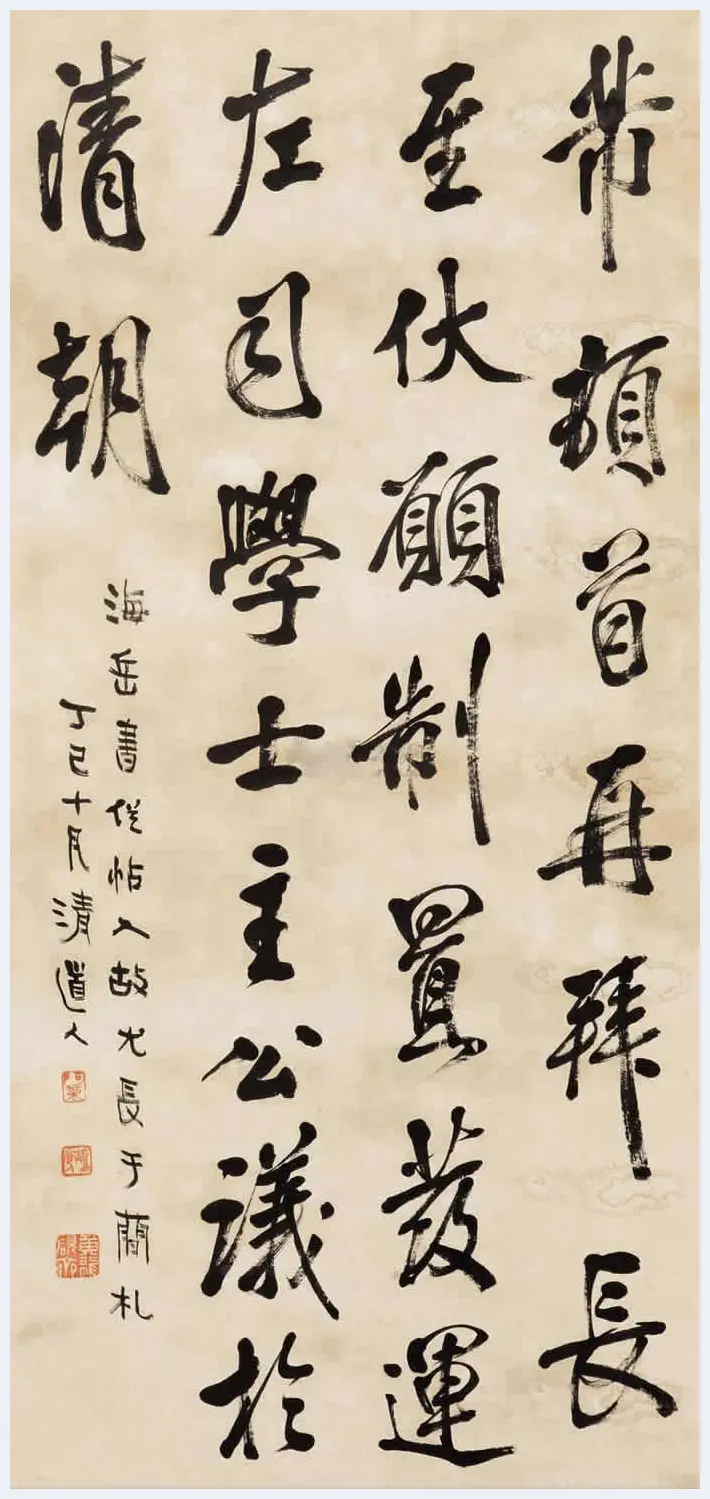 芾頓首再拜長
至伏願制置發運
左司學士主公議於
清朝
海岳書從帖入故尤長于蕳札
丁巳十月清道人